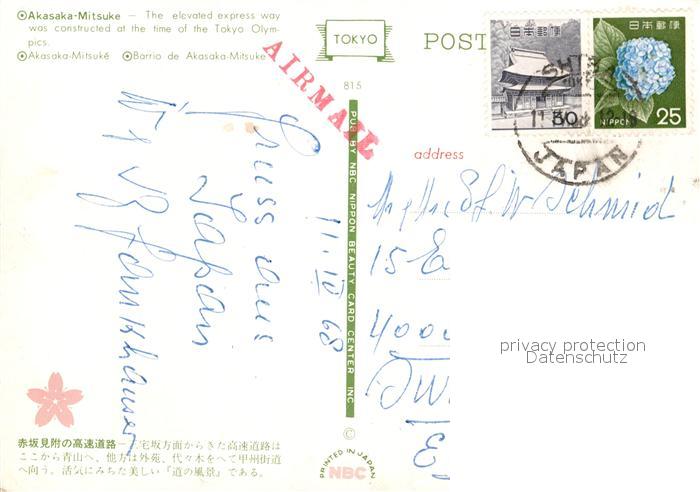 Akasaka-Mitsuke — The elevated express way
was constructed at the time of the Tokyo Olym-
pics.
Akasaka-Mitsuké Barrio de Akasaka-Mitsuke
TOKYO
POST
815
AIRMAIL
日本郵便
30
日本郵便
NIPPON 25
JAPAN
address
PUB BY NBC NIPPON BEAUTY CARD CENTER INC
Gruss aus
Japan
11. IV 68
W Schmid
15
4000
privacy protection
Datenschutz
赤坂見附の高速道路—三宅坂方面からきた高速道路は
ここから青山へ、他方は外苑、代々木をへて甲州街道
へ向う。活気にみちた美しい『道の風景』である。
©
PRINTED IN JAPAN
NBC